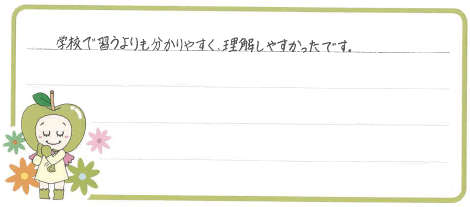 学校で習うよりも分かりやすく、理解しやすかったです。